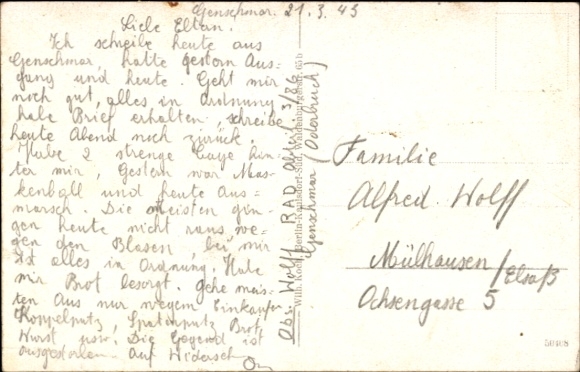 Genschmar. 21.3.43
Liebe Eltern.
Ich schreibe heute aus
Genschmar, hatte gestern Aus=
gang und heute. Geht mir
noch gut, alles in Ordnung
habe Brief erhalten, schreibe
heute Abend noch zurück.
Habe 2 strenge Tage hin=
ter mir, Gestern war Mas=
kenball und heute Aus=
marsch. Die Meisten gin=
gen heute nicht raus we=
gen den Blasen, bei mir
ist alles in Ordnung. Habe
mir Brot besorgt. Gehe mais=
ten Aus nur wegem Einkaufen
Koppelputz, Spatenputz Brot,
Wurst usw. Die Gegend ist
ausgestorben. Auf Widerseh
Abs. Wolff RAD Abteil. 3/86
Genschmar (Oderbruch)
Wilh. Koch, Berlin-Kaulsdorf-Süd, Waldenburgerstr. 65b
Familie
Alfred Wolff
Mülhausen/Elsaß
Ochsengasse 5